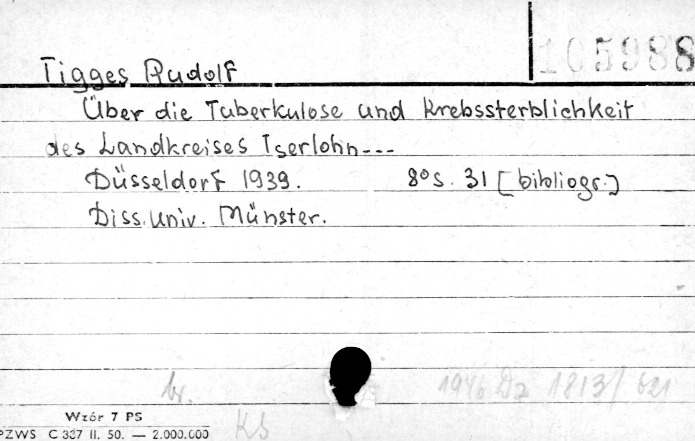 105988
Tigges Rudolf
Über die Tuberkulose und Krebssterblichkeit
des Landkreises Iserlohn---
Düsseldorf 1939. 8° s. 31 [bibliogr.]
Diss. Univ. Münster.
br. 1946 Dz 1813/621
Wzór 7 PS
PZWS C 337 II. 50. — 2.000.000 KS